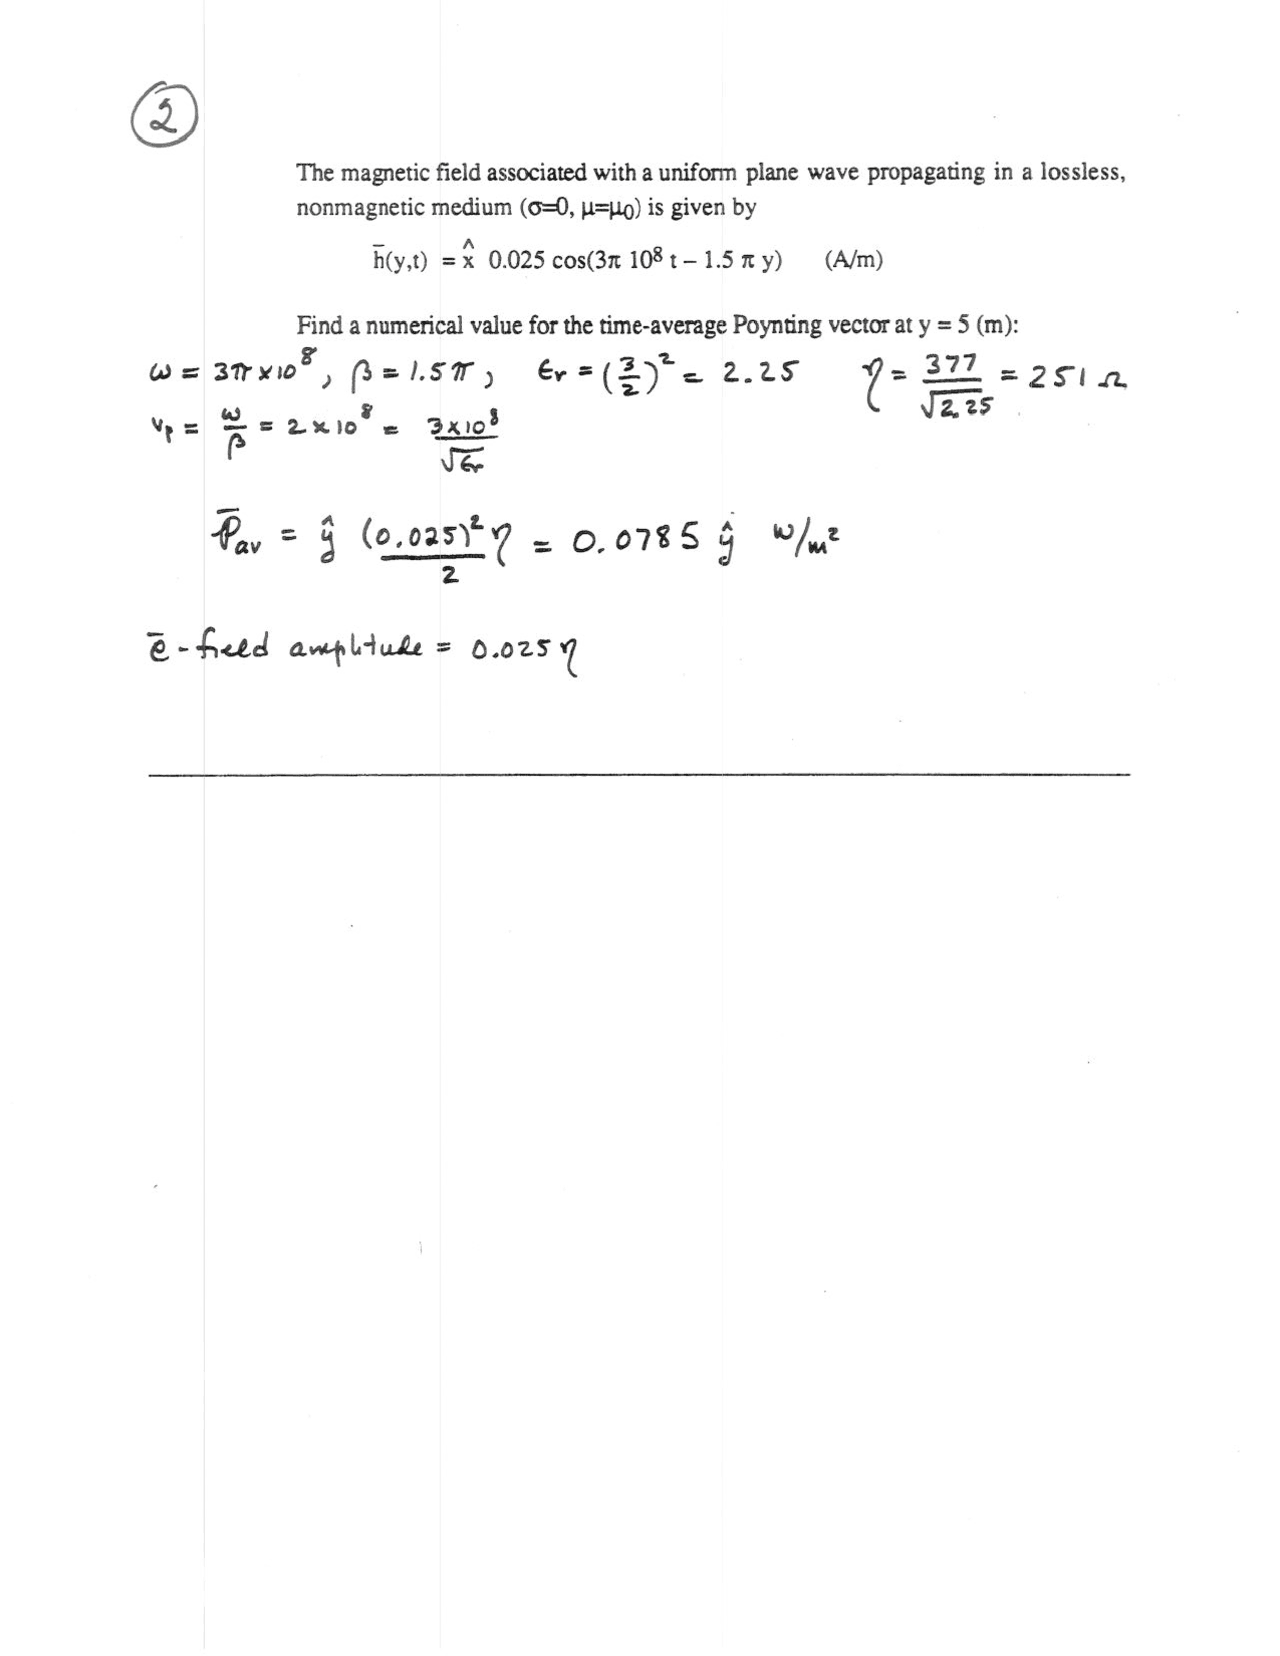 2
The magnetic field associated with a uniform plane wave propagating in a lossless,
nonmagnetic medium (σ=0, μ=μ₀) is given by
h̄(y,t) = x̂ 0.025 cos(3π 10⁸ t – 1.5 π y) (A/m)
Find a numerical value for the time-average Poynting vector at y = 5 (m):
ω = 3π×10⁸, β = 1.5π, εr = (3/2)² = 2.25 η = 377/√2.25 = 251 Ω
vp = ω/β = 2×10⁸ = 3×10⁸/√εr
P̄av = ŷ (0.025)²/2 η = 0.0785 ŷ W/m²
ē-field amplitude = 0.025 η